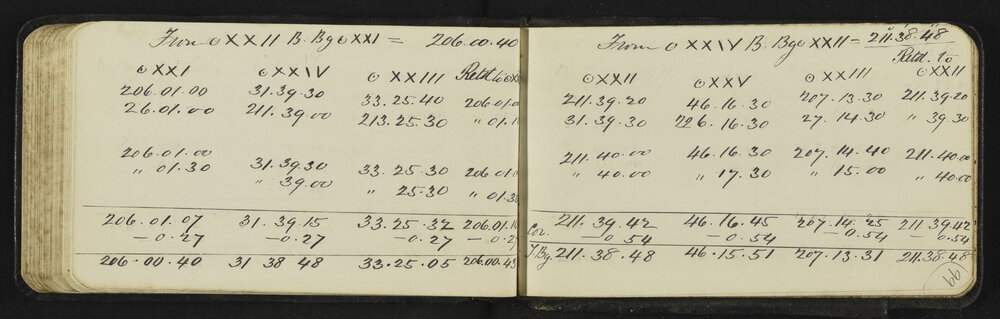 From ⊙ XXII B. Bg ⊙ XXI = 206.00.40
⊙ XXI ⊙ XXIV ⊙ XXIII Retd. to ⊙XXI
206.01.00 31.39.30 33.25.40 206.01.0
26.01.00 211.39.00 213.25.30 " 01.1
206.01.00 31.39.30 33.25.30 206.01.0
" 01.30 " 39.00 " 25.30 " 01.30
206.01.07 31.39.15 33.25.32 206.01.1
-0.27 -0.27 -0.27 -0.27
206.00.40 31 38 48 33.25.05 206.00.43
From ⊙ XXIV B. Bg ⊙ XXII = 211.38.48
Retd. to
⊙ XXII ⊙ XXV ⊙ XXIII ⊙ XXII
211.39.20 46.16.30 207.13.30 211.39.20
31.39.30 226.16.30 27.14.30 " 39.30
211.40.00 46.16.30 207.14.40 211.40.00
" 40.00 " 17.30 " 15.00 " 40.00
211.39.42 46.16.45 207.14.25 211.39.42
Cor. -0.54 -0.54 -0.54 -0.54
T.Bg. 211.38.48 46.15.51 207.13.31 211.38.48
99